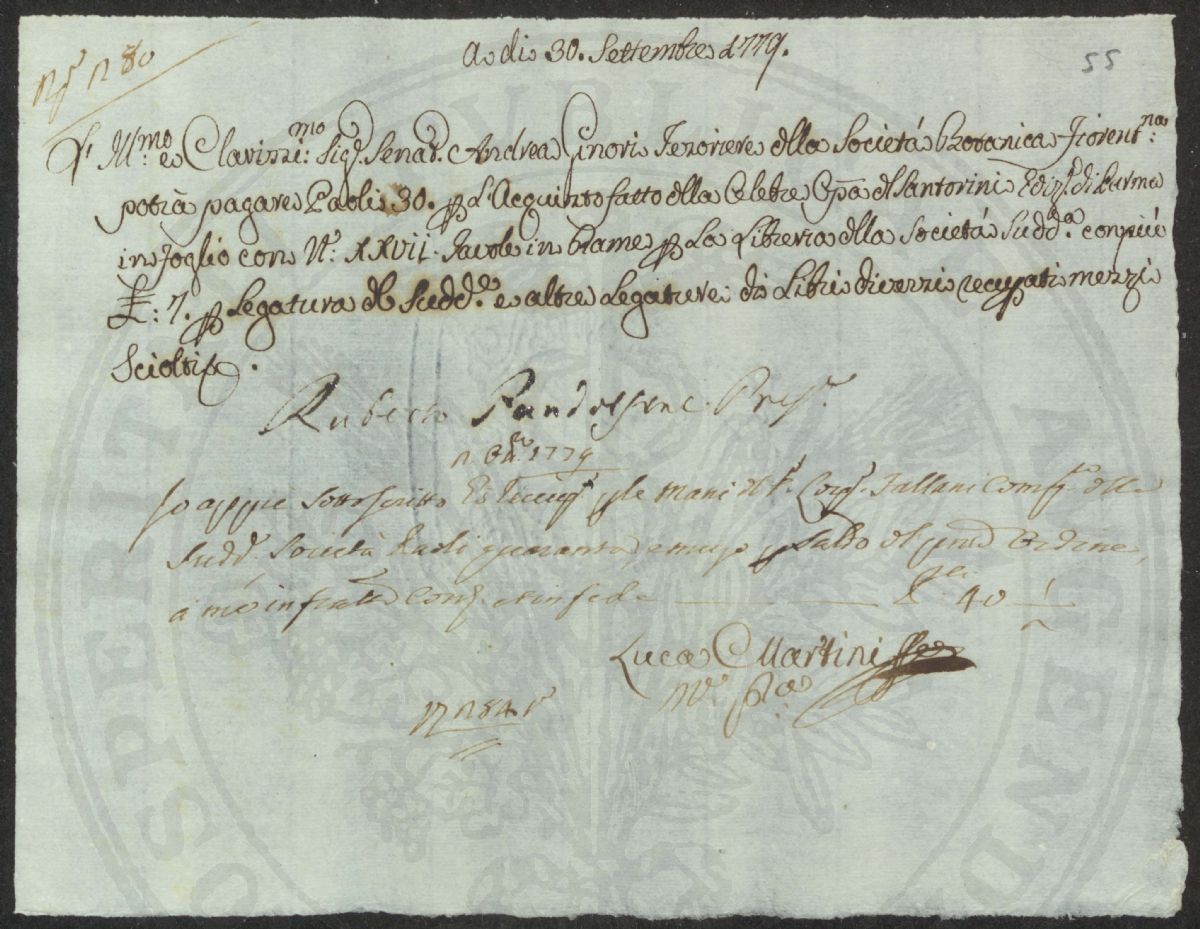 A di 30. Settembre 1779.
55
n 80
L' Ill.mo e Clarissi:mo Sig.r Senat. Andrea Ginori Tesoriere della Società Botanica Fiorent.na
potrà pagare Paoli 30. p l'Acquisto fatto della Celebre Opa del Santorini Ediz.e di Parma
in foglio con N.o XXVII. Tavole in Rame p La Libreria della Società Sudd.a con più
£: 7. p Legatura del Sudd.o e altre Legature di Libri diversi recupati mezzi
Sciolti.
Ruberto Pandolfini Pres.e
1779
Io appie Sottoscritto ho ricev.o p le mani del Fallani Comp. della
Sudd.a Società Paoli quaranta, e mezzo p Saldo del Ordine,
a me in contanti e in fede 40
Luca Martini
M.o p.a
n 84
PUBLICE
PROSPERITATI
AUGENDAE